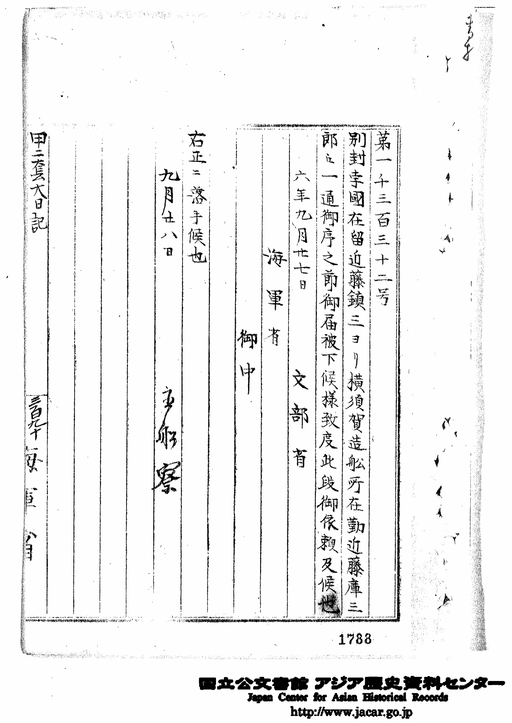 第一千三百三十二号
別封孛國在留近藤鎮三ヨリ横須賀造船所在勤近藤庫三
郎江一通御序之節御届被下候様致度此段御依頼及候也
六年九月廿七日 文部省
海軍省
御中
右正ニ落手候也
九月廿八日
主船寮
甲二套大日記
海軍省
1733
国立公文書館 アジア歴史資料センター
Japan Center for Asian Historical Records
http://www.jacar.go.jp